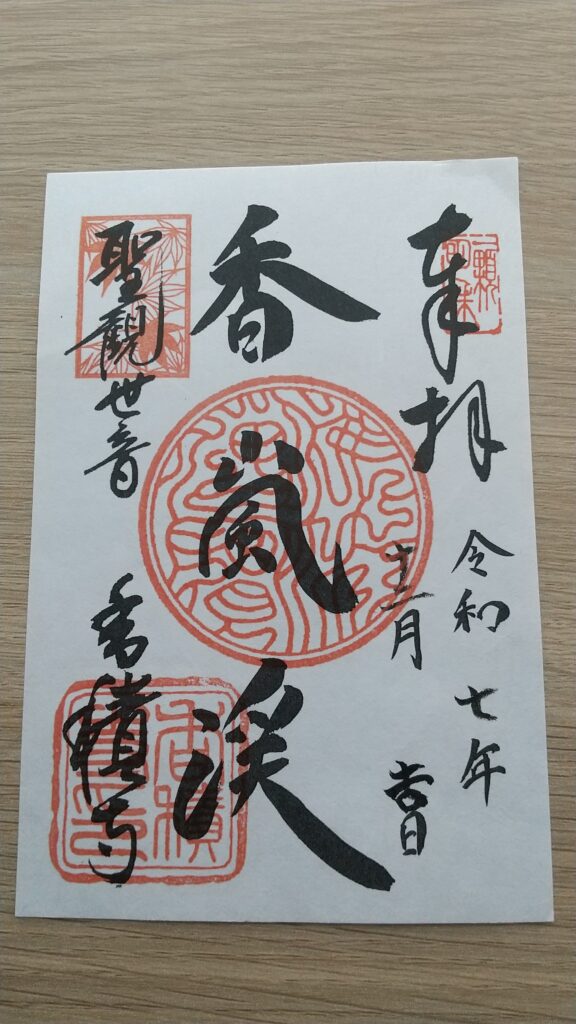 奉拝
令和七年
十二月 吉日
香嵐渓
聖観世音
香積寺